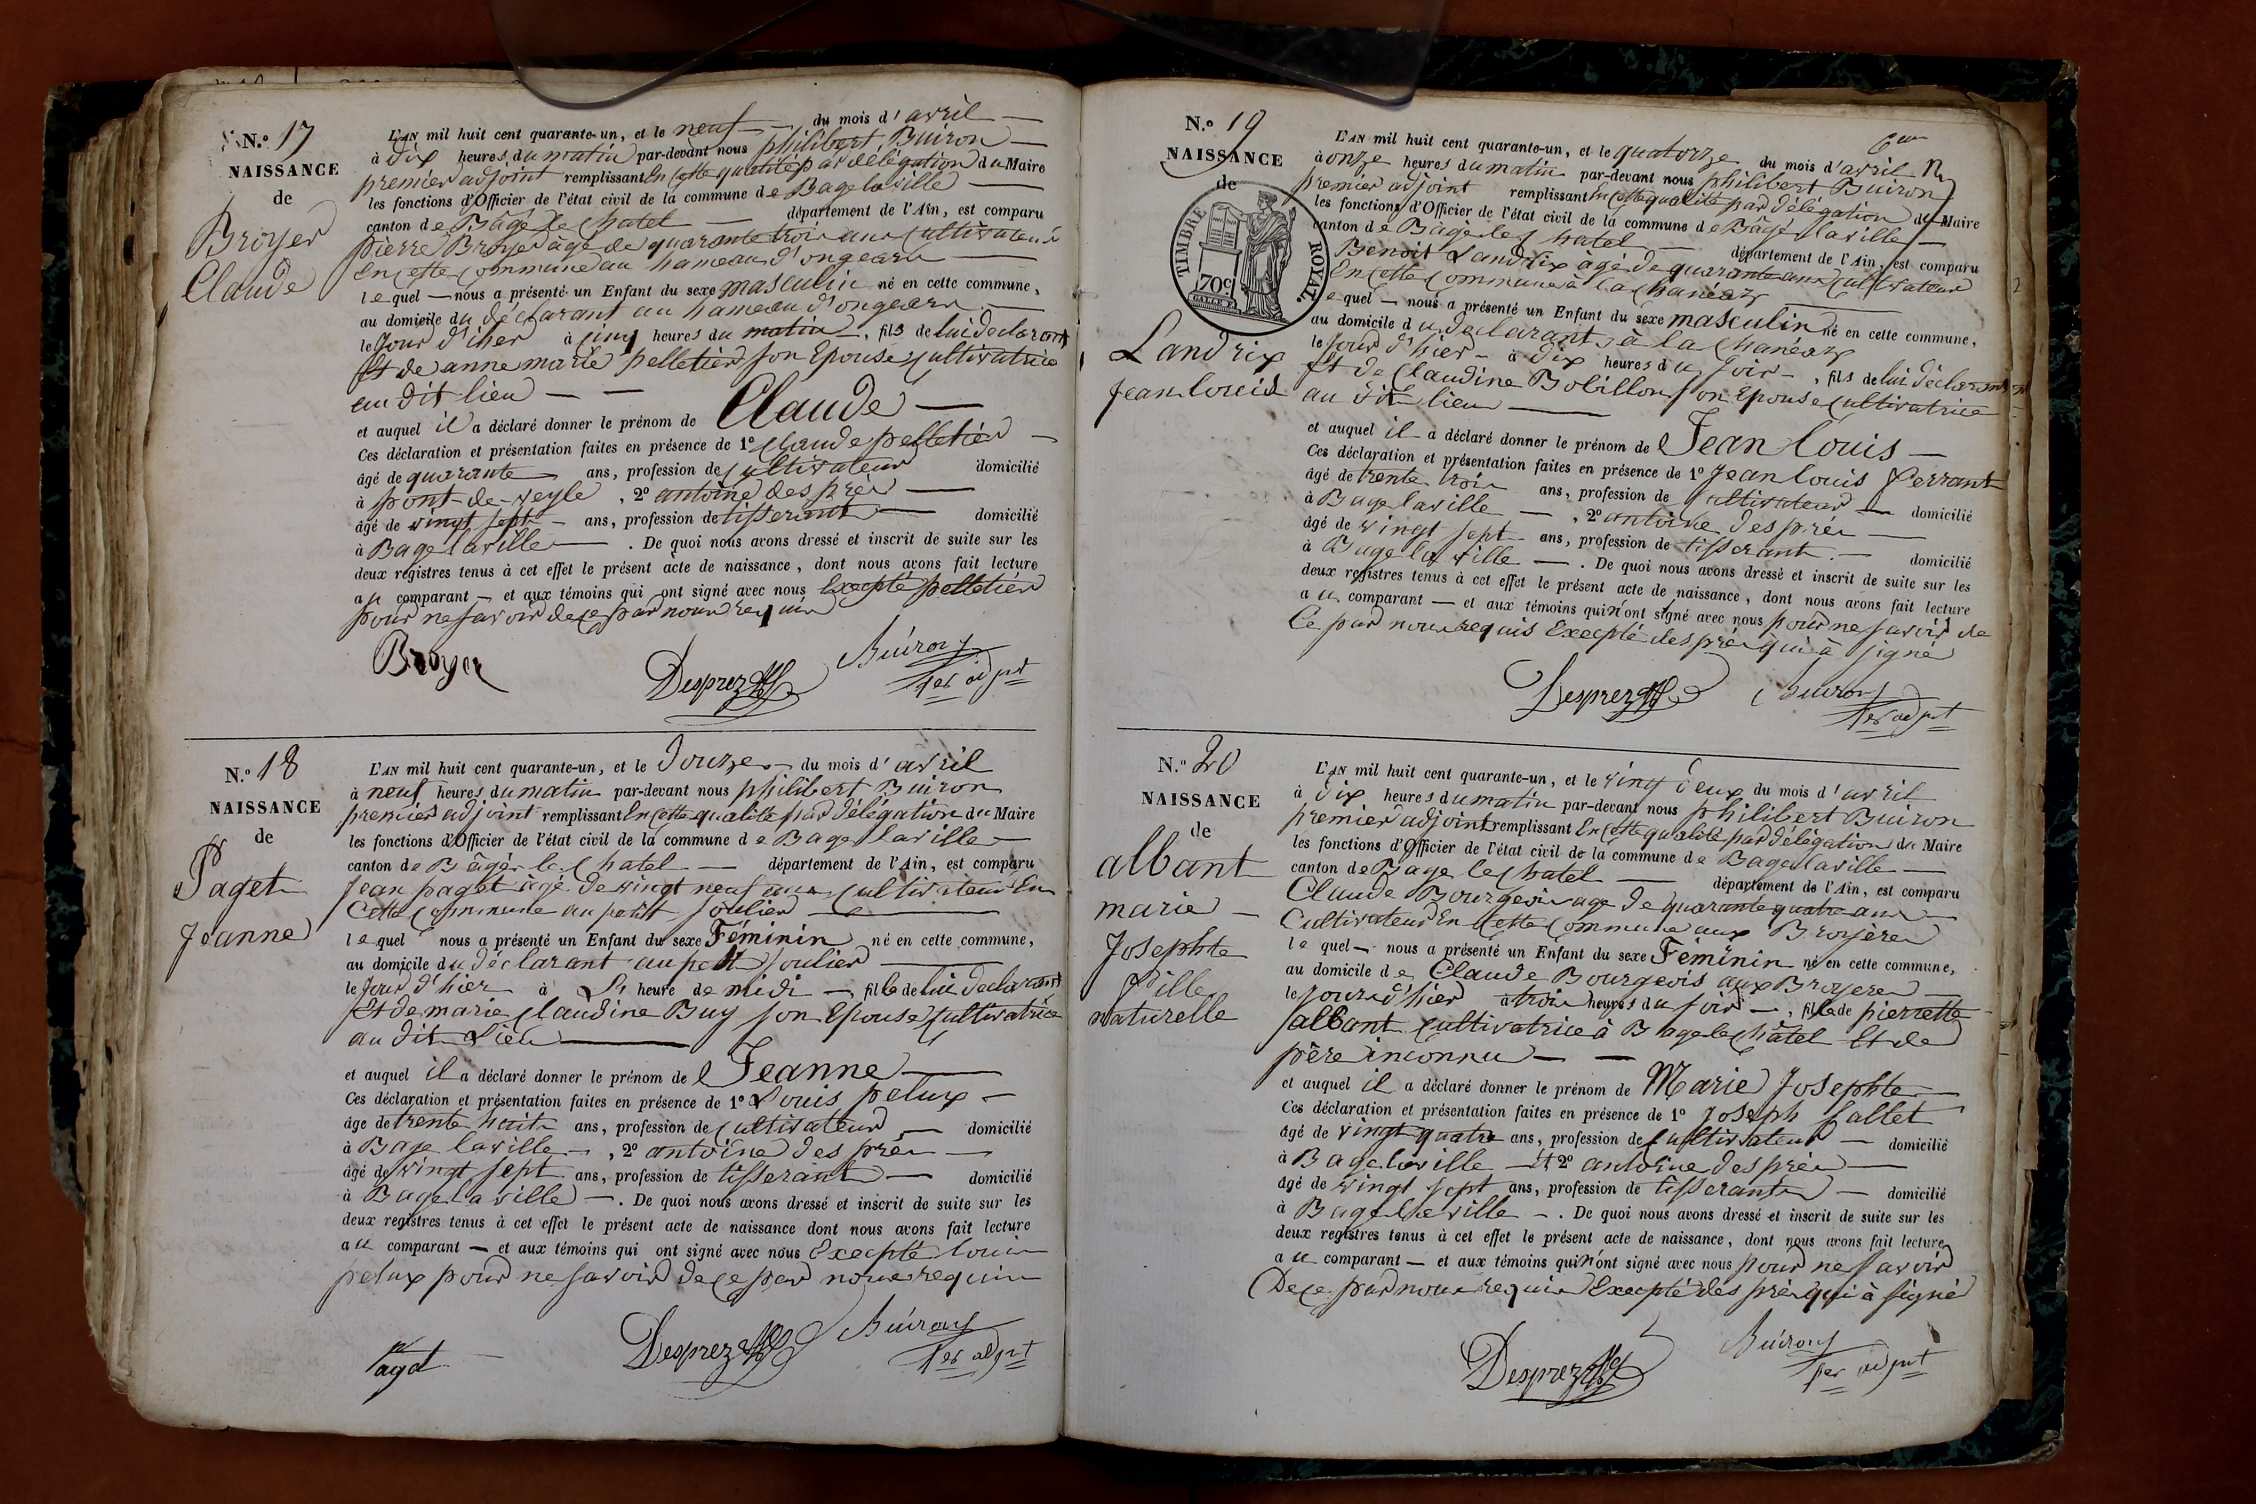 N.o 17
NAISSANCE
de
Broyer
Claude
L'AN mil huit cent quarante-un, et le neuf du mois d'avril
à dix heures du matin par-devant nous philibert Buiron
premier adjoint remplissant En cette qualité par délégation du Maire
les fonctions d'Officier de l'état civil de la commune de Bage la ville
canton de Bâgé le Chatel département de l'Ain, est comparu
pierre Broyer âgé de quarante trois ans Cultivateur
En cette Commune au hameau d'ongearn
lequel nous a présenté un Enfant du sexe masculin né en cette commune,
au domicile du déclarant au hameau d'ongearn
le Jour d'hier à Cinq heures du matin, fils de lui déclarant
Et de anne marie pelletier son Epouse Cultivatrice
au dit lieu
et auquel il a déclaré donner le prénom de Claude
Ces déclaration et présentation faites en présence de 1º Claude pelletier
âgé de quarante ans, profession de Cultivateur domicilié
à pont-de-veyle, 2º antoine des prés
âgé de vingt sept ans, profession de tisserant domicilié
à Bage la ville. De quoi nous avons dressé et inscrit de suite sur les
deux registres tenus à cet effet le présent acte de naissance, dont nous avons fait lecture
au comparant et aux témoins qui ont signé avec nous Excepté pelletier
pour ne savoir de ce par nous requis
Broyer Desprez Buiron
1er adjnt
N.o 18
NAISSANCE
de
Paget
Jeanne
L'AN mil huit cent quarante-un, et le Douze du mois d'avril
à neuf heures du matin par-devant nous philibert Buiron
premier adjoint remplissant En cette qualité par délégation du Maire
les fonctions d'Officier de l'état civil de la commune de Bage la ville
canton de Bâgé le Chatel département de l'Ain, est comparu
Jean paget âgé de vingt neuf ans Cultivateur En
Cette Commune au petit Soulier
lequel nous a présenté un Enfant du sexe Féminin né en cette commune,
au domicile du déclarant au petit Soulier
le Jour d'hier à heure de midi fille de lui déclarant
Et de marie Claudine Buy son Epouse Cultivatrice
au dit Lieu
et auquel il a déclaré donner le prénom de Jeanne
Ces déclaration et présentation faites en présence de 1º Louis pelux
âge de trente huit ans, profession de Cultivateur domicilié
à Bage la ville, 2º antoine des prés
âgé de vingt sept ans, profession de tisserant domicilié
à Bage la ville. De quoi nous avons dressé et inscrit de suite sur les
deux registres tenus à cet effet le présent acte de naissance dont nous avons fait lecture
au comparant et aux témoins qui ont signé avec nous Excepté Louis
pelux pour ne savoir de ce par nous requis
Paget Desprez Buiron
1er adjnt
N.o 19
NAISSANCE
de
TIMBRE ROYAL.
70c.
Landrix
Jean louis
L'AN mil huit cent quarante-un, et le quatorze du mois d'avril
à onze heures du matin par-devant nous philibert Buiron
premier adjoint remplissant En cette qualité par délégation du Maire
les fonctions d'Officier de l'état civil de la commune de Bâgé la ville
canton de Bâgé le Chatel département de l'Ain, est comparu
Benoit Landrix âgé de quarante ans Cultivateur
En cette Commune à la Chanéaz
lequel nous a présenté un Enfant du sexe masculin né en cette commune,
au domicile du déclarant à la Chanéaz
le Jour d'hier à dix heures du soir, fils de lui déclarant
Et de Claudine Bobillon son Epouse Cultivatrice
au dit lieu
et auquel il a déclaré donner le prénom de Jean Louis
Ces déclaration et présentation faites en présence de 1º Jean louis Ferrant
âgé de trente trois ans, profession de Cultivateur domicilié
à Bage la ville, 2º antoine des prés
âgé de vingt sept ans, profession de tisserant domicilié
à Bage la ville. De quoi nous avons dressé et inscrit de suite sur les
deux registres tenus à cet effet le présent acte de naissance, dont nous avons fait lecture
au comparant et aux témoins qui n'ont signé avec nous pour ne savoir de
Ce par nous requis Excepté des prés qui à signé
Desprez Buiron
1er adjnt
N.o 20
NAISSANCE
de
albant
marie
Josephte
Fille
naturelle
L'AN mil huit cent quarante-un, et le vingt deux du mois d'avril
à dix heures du matin par-devant nous philibert Buiron
premier adjoint remplissant En cette qualité par délégation du Maire
les fonctions d'Officier de l'état civil de la commune de Bage la ville
canton de Bage le Chatel département de l'Ain, est comparu
Claude Bourgeois age de quarante quatre ans
Cultivateur En Cette Commune aux Broyères
lequel nous a présenté un Enfant du sexe Féminin né en cette commune,
au domicile de Claude Bourgeois aux Broyeres
le jour d'hier à trois heures du soir, fille de pierrette
albant Cultivatrice à Bage le Châtel Et de
père inconnu
et auquel il a déclaré donner le prénom de Marie Josephte
Ces déclaration et présentation faites en présence de 1º Joseph Callet
âgé de vingt quatre ans, profession de Cultivateur domicilié
à Bage la ville Et 2º antoine des prés
âgé de vingt sept ans, profession de tisserant domicilié
à Bage la ville. De quoi nous avons dressé et inscrit de suite sur les
deux registres tenus à cet effet le présent acte de naissance, dont nous avons fait lecture
au comparant et aux témoins qui n'ont signé avec nous pour ne savoir
De ce par nous requis Excepté des prés qui à signé
Desprez Buiron
1er adjnt